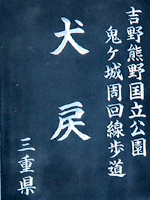 吉野熊野国立公園
鬼ケ城周回線歩道
犬戻
三重県